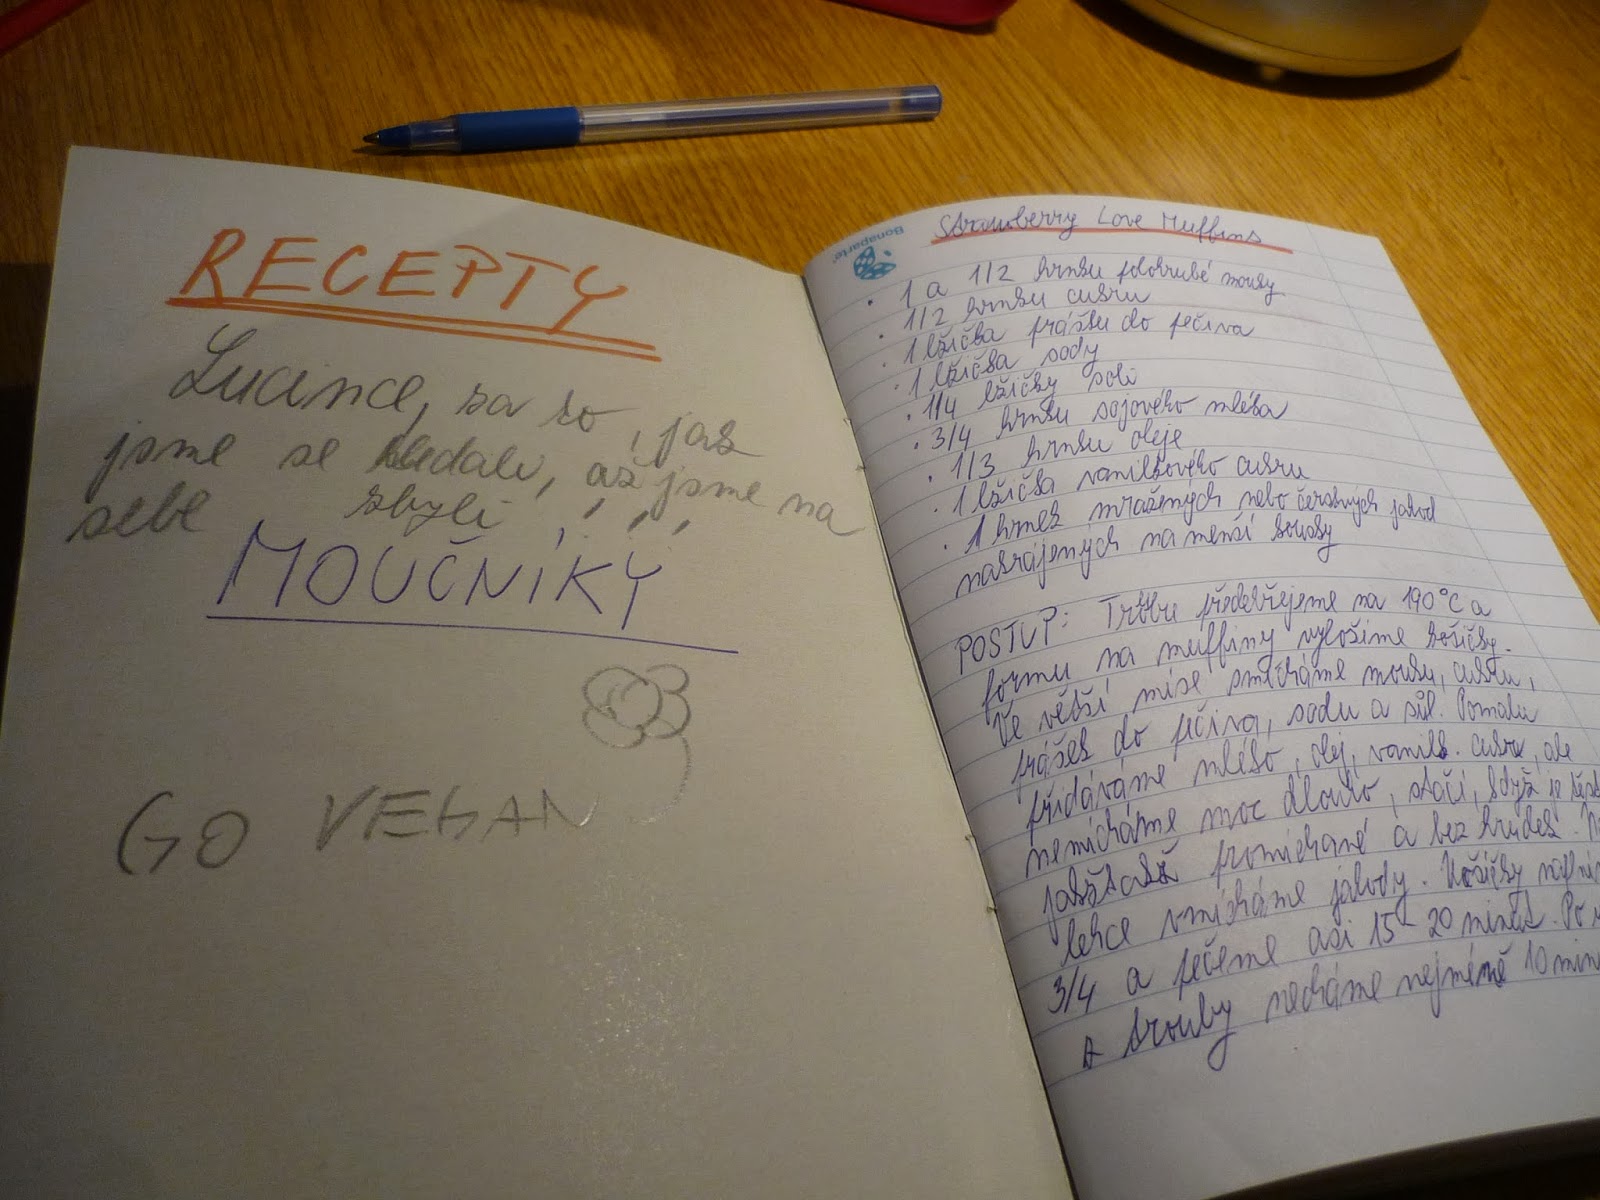 RECEPTY
Lucince, za to, jak
jsme se hledali, až jsme na
sebe zbyli
MOUČNÍKY
GO VEGAN
Bonaparte
Strawberry Love Muffins
• 1 a 1/2 hrnku polohrubé mouky
• 1/2 hrnku cukru
• 1 lžička prášku do pečiva
• 1 lžička sody
• 1/4 lžičky soli
• 3/4 hrnku sojového mléka
• 1/3 hrnku oleje
• 1 lžička vanilkového cukru
• 1 hrnek mražených nebo čerstvých jahod
nakrájených na menší kousky
POSTUP: Troubu předehřejeme na 190°C a
formu na muffiny vyložíme košíčky.
Ve větší míse smícháme mouku, cukru,
prášek do pečiva, sodu a sůl. Pomalu
přidáváme mléko, olej, vanilk. cukr, ale
nemícháme moc dlouho, stačí, když je těsto
jakžtakž promíchané a bez hrudek.
lehce vmícháme jahody. Košíčky
3/4 a pečeme asi 15-20 minut. Po
z trouby necháme nejméně 10 min